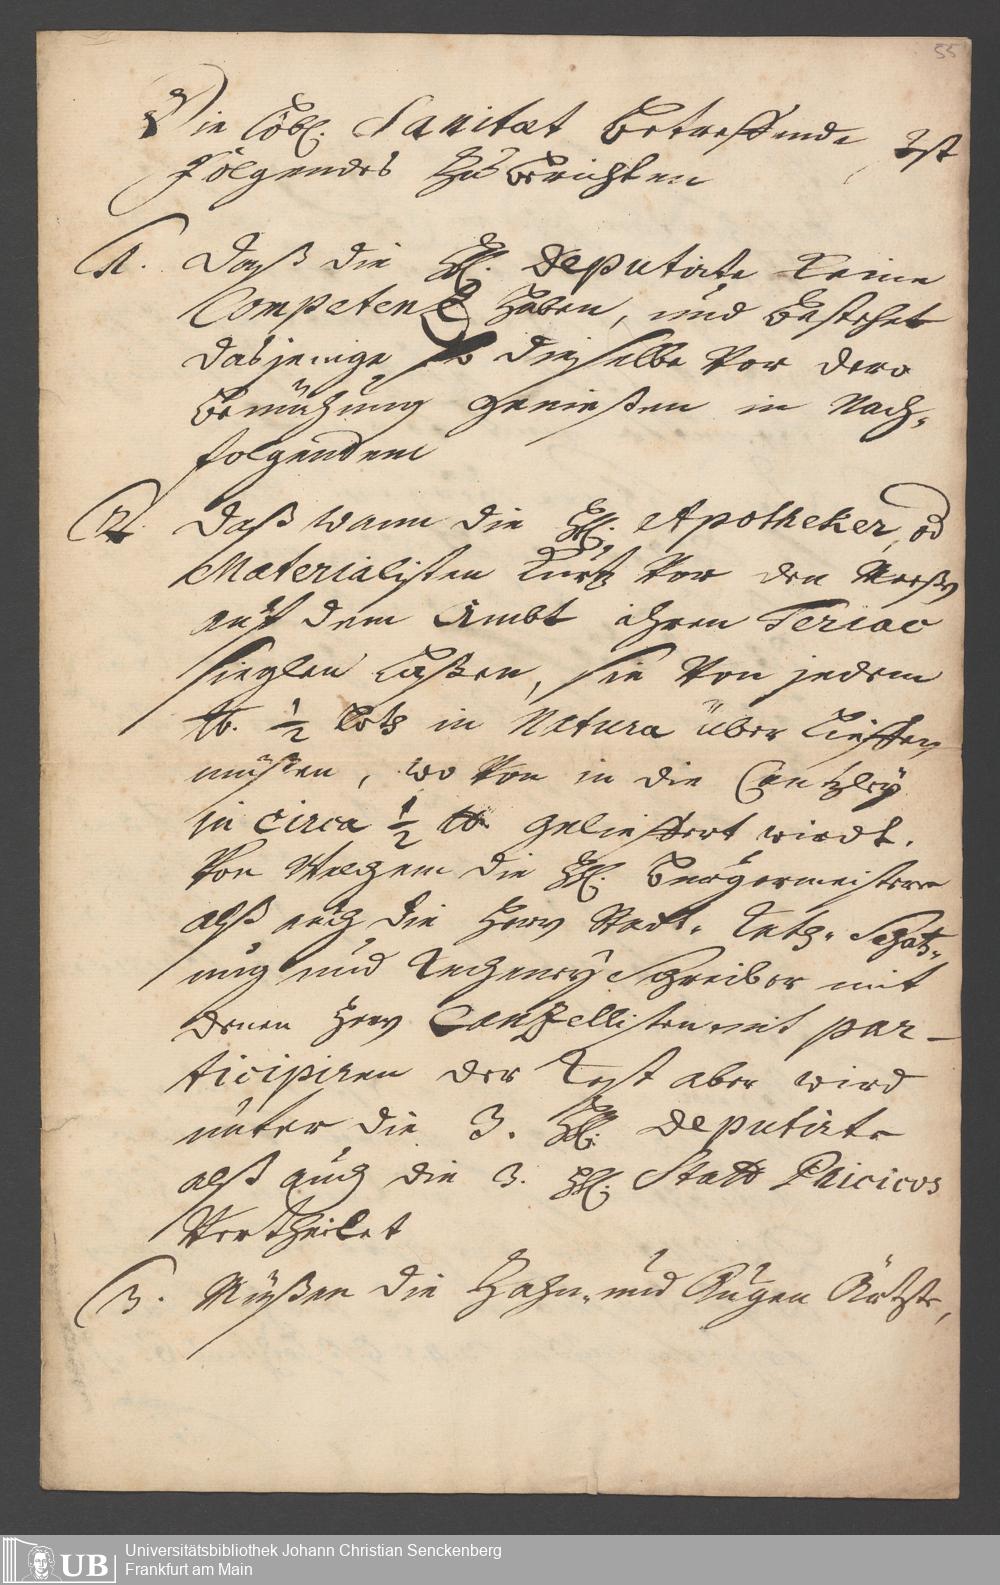 55
Die Löbl. Sanitæt Betreffende Ist
Folgendes Zu Berichten
1. Daß die HH. Deputirte Keine
Competenz Haben, und Bestehet
dasjenige so dieselbe Vor dero
Bemühung genießen in Nach-
folgendem
2. Daß wann die HH. Apotheker, od
Materialisten Kurtz Vor den Meßen
auf dem Ambt ihren Teriac
sieglen Laßen, sie Von jedem
℔. ½ Loth in Natura über Lieffern
müßen, wo Von in die Cantzley
in circa ½ ℔ gelieffert wirdt.
Von Welchem die HH. Burgermeistere
alß auch die Herrn Stadt- Rath- Schatz-
ung und Rechney Schreiber mit
denen Herrn Canzellisten mit par-
ticipiren der Rest aber wird
unter die 3. HH. Deputirte
alß auch die 3. HH. Statt Phicicos
Vertheilet
3. Müßen die Zahn- und Augen Ärtzte,
UB
Universitätsbibliothek Johann Christian Senckenberg
Frankfurt am Main